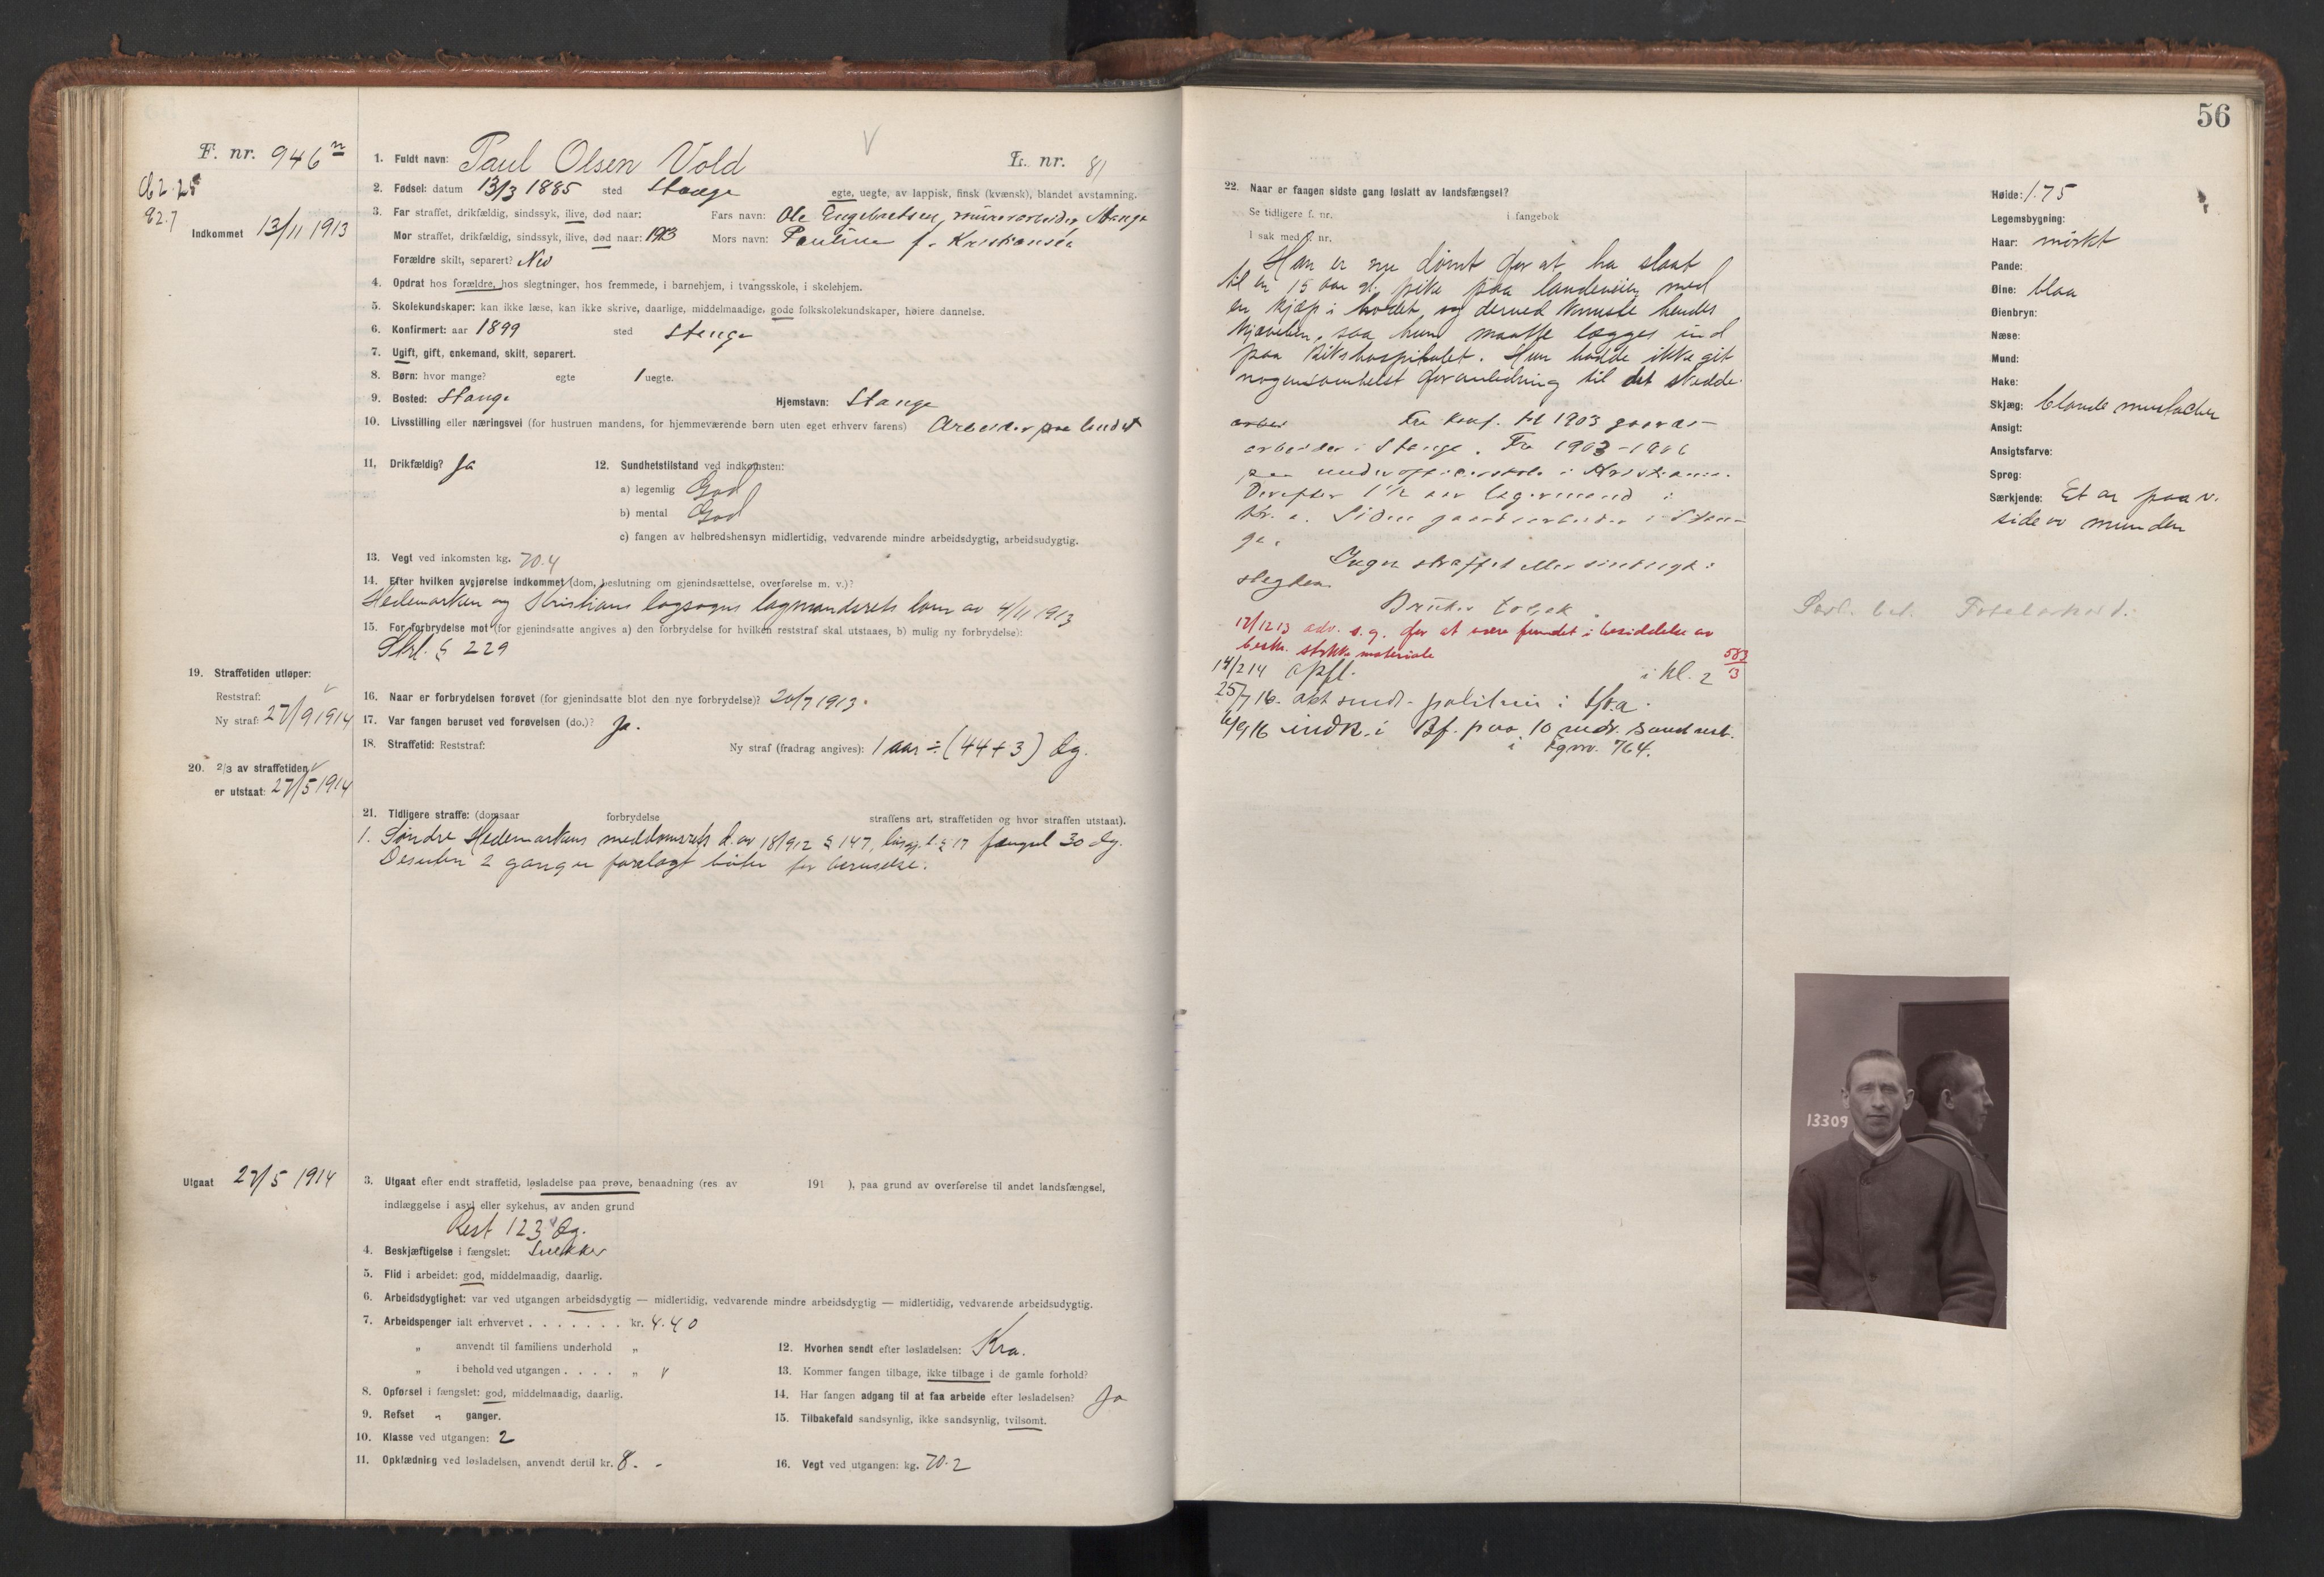 F. nr. 946
Indkommet 13/11 1913
1. Fuldt navn: Paul Olsen Vold
L. nr. 81
2. Fødsel: datum 13/3 1885 sted Stange
egte, uegte, av lappisk, finsk (kvænsk), blandet avstamning.
3. Far straffet, drikfældig, sindssyk, ilive, død naar: Fars navn: Ole Engebretsen, murerarbeider, Stange
Mor straffet, drikfældig, sindssyk, ilive, død naar: 1913 Mors navn: Pauline f. Kristiansen
Forældre skilt, separert? Nei
4. Opdrat hos forældre, hos slegtninger, hos fremmede, i barnehjem, i tvangsskole, i skolehjem.
5. Skolekundskaper: kan ikke læse, kan ikke skrive, daarlige, middelmaadige, gode folkskolekundskaper, høiere dannelse.
6. Konfirmert: aar 1899 sted Stange
7. Ugift, gift, enkemand, skilt, separert.
8. Børn: hvor mange? egte 1 uegte.
9. Bosted: Stange Hjemstavn: Stange
10. Livsstilling eller næringsvei (for hustruen mandens, for hjemmeværende børn uten eget erhverv farens) Arbeider paa landet
11. Drikfældig? Ja
12. Sundhetstilstand ved indkomsten:
a) legemlig God
b) mental God
c) fangen av helbredshensyn midlertidig, vedvarende mindre arbeidsdygtig, arbeidsudygtig.
13. Vegt ved inkomsten kg. 70.4
14. Efter hvilken avgjørelse indkommet (dom, beslutning om gjenindsættelse, overførelse m. v.)?
Hedemarken og Kristians lagsogns lagmandsrets dom av 4/11 1913
15. For forbrydelse mot (for gjenindsatte angives a) den forbrydelse for hvilken reststraf skal utstaaes, b) mulig ny forbrydelse):
Strl. § 229
19. Straffetiden utløper:
Reststraf:
Ny straf: 27/9 1914
16. Naar er forbrydelsen forøvet (for gjenindsatte blot den nye forbrydelse)? 20/7 1913.
17. Var fangen beruset ved forøvelsen (do.)? Ja.
18. Straffetid: Reststraf: Ny straf (fradrag angives): 1 aar ÷ (44+3) dg.
20. 2/3 av straffetiden
er utstaat: 27/5 1914
21. Tidligere straffe: (domsaar forbrydelse straffens art, straffetiden og hvor straffen utstaat).
1. Søndre Hedemarkens meddomsrets d. av 18/9 12 § 147, løsgj. l. § 17 fængsel 30 dg.
Desuten 2 ganger forelagt bøter for beruselse.
Utgaat 27/5 1914
3. Utgaat efter endt straffetid, løsladelse paa prøve, benaadning (res av 191 ), paa grund av overførelse til andet landsfængsel,
indlæggelse i asyl eller sykehus, av anden grund
Rest 123 dg.
4. Beskjæftigelse i fængslet: Snekker
5. Flid i arbeidet: god, middelmaadig, daarlig.
6. Arbeidsdygtighet: var ved utgangen arbeidsdygtig — midlertidig, vedvarende mindre arbeidsdygtig — midlertidig, vedvarende arbeidsudygtig.
7. Arbeidspenger ialt erhvervet . . . . . . . kr. 4.40
„ anvendt til familiens underhold „
„ i behold ved utgangen . . . . „
8. Opførsel i fængslet: god, middelmaadig, daarlig.
9. Refset ganger.
10. Klasse ved utgangen: 2
11. Opklædning ved løsladelsen, anvendt dertil kr. 8.-
12. Hvorhen sendt efter løsladelsen: Kra.
13. Kommer fangen tilbage, ikke tilbage i de gamle forhold?
14. Har fangen adgang til at faa arbeide efter løsladelsen? Ja
15. Tilbakefald sandsynlig, ikke sandsynlig, tvilsomt.
16. Vegt ved utgangen: kg. 70.2
56
22. Naar er fangen sidste gang løslatt av landsfængsel?
Se tidligere f. nr. i fangebok
I sak med f. nr.
Han er nu dømt for at ha slaat
til en 15 aar gl. pike paa landeveien med
en kjæp i hodet, og derved knuste hendes
kjæveben, saa hun maatte lægges ind
paa Rikshospitalet. Hun hadde ikke git
nogensomhelst foranledning til det skedde.
Fra konf. til 1903 gaards-
arbeider i Stange. Fra 1903-1906
paa underofficersskole i Kristiania.
Derefter 1 1/2 aar lagermand i
Kr.a. Siden gaardsarbeider i Stan-
ge.
Ingen straffet eller sindssyk i
slegten.
Bruker tobak.
12/12 13 adv. s.g. for at være fundet i besiddelse av
besk. stykke materiale
583/13
14/2 14 opfl. i kl. 2
25/7 16. akt sendt politiet i Kr.a.
6/9 16 indk. i Bf. paa 10 mdr.
i fgnr. 764.
Høide: 1.75
Legemsbygning:
Haar: mørkt
Pande:
Øine: blaa
Øienbryn:
Næse:
Mund:
Hake:
Skjæg: blonde mustacher
Ansigt:
Ansigtsfarve:
Sprog:
Særkjende: Et ar paa v.
side av munden
13309